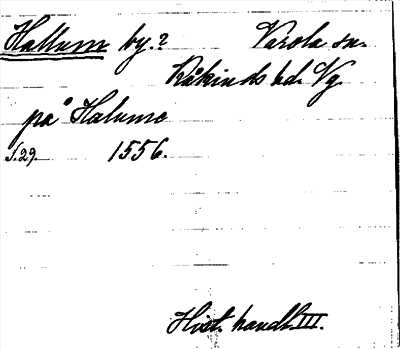 Hallum by.? Varola sn.
Kåkinds hd. Vg.
på Halume
s. 29. 1556.
Hist. handl. III.